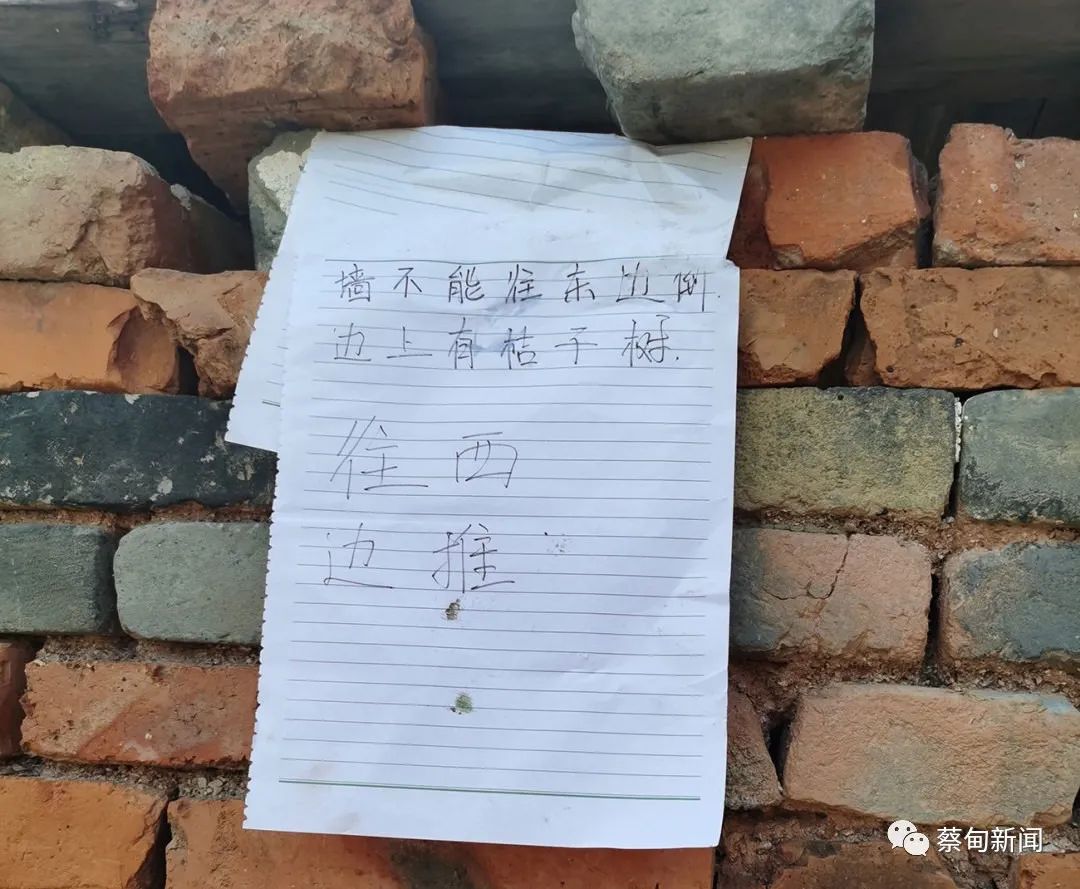 墙不能往东边倒.
边上有桔子树.
往西
边推
蔡甸新闻